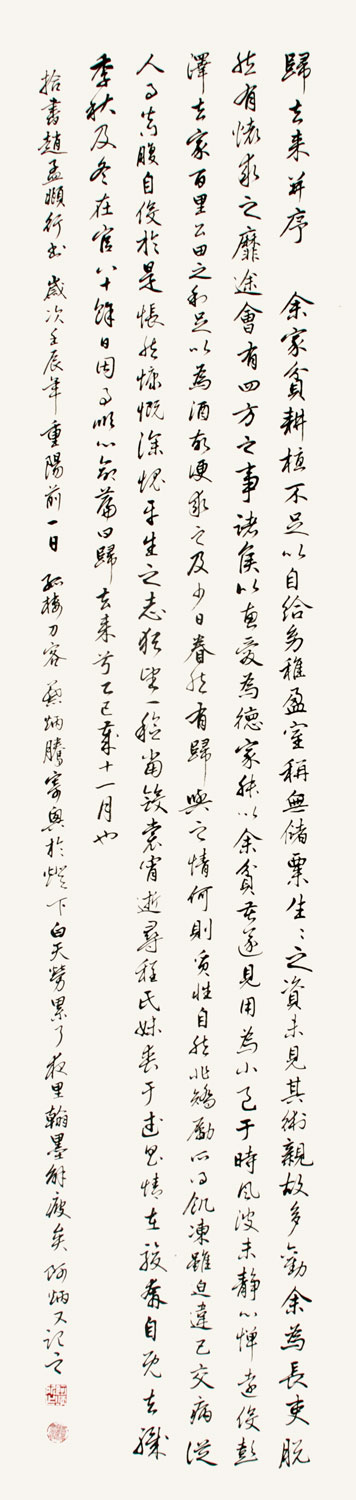 歸去来並序 余家貧耕植不足以自給幼稚盈室瓶無儲粟生〻之資未見其術親故多勸余為長吏脱
然有懷求之靡途會有四方之事諸侯以惠愛為德家叔以余貧苦遂見用為小邑于時風波未靜心憚遠役彭
澤去家百里公田之利足以為酒故便求之及少日眷然有歸與之情何則質性自然非矯勵所得飢凍雖迫違己交病從
人事皆口腹自役於是悵然慷慨深愧平生之志猶望一稔當斂裳宵逝尋程氏妹喪于武昌情在駿奔自免去職
季秋及冬在官八十餘日因事順心命篇曰歸去来兮乙巳歲十一月也
拾書趙孟頫行書 歲次壬辰年重陽前一日 孤樓刀客 蔡炳騰寄興於燈下白天勞累了夜里翰墨解疲矣 阿炳又記之